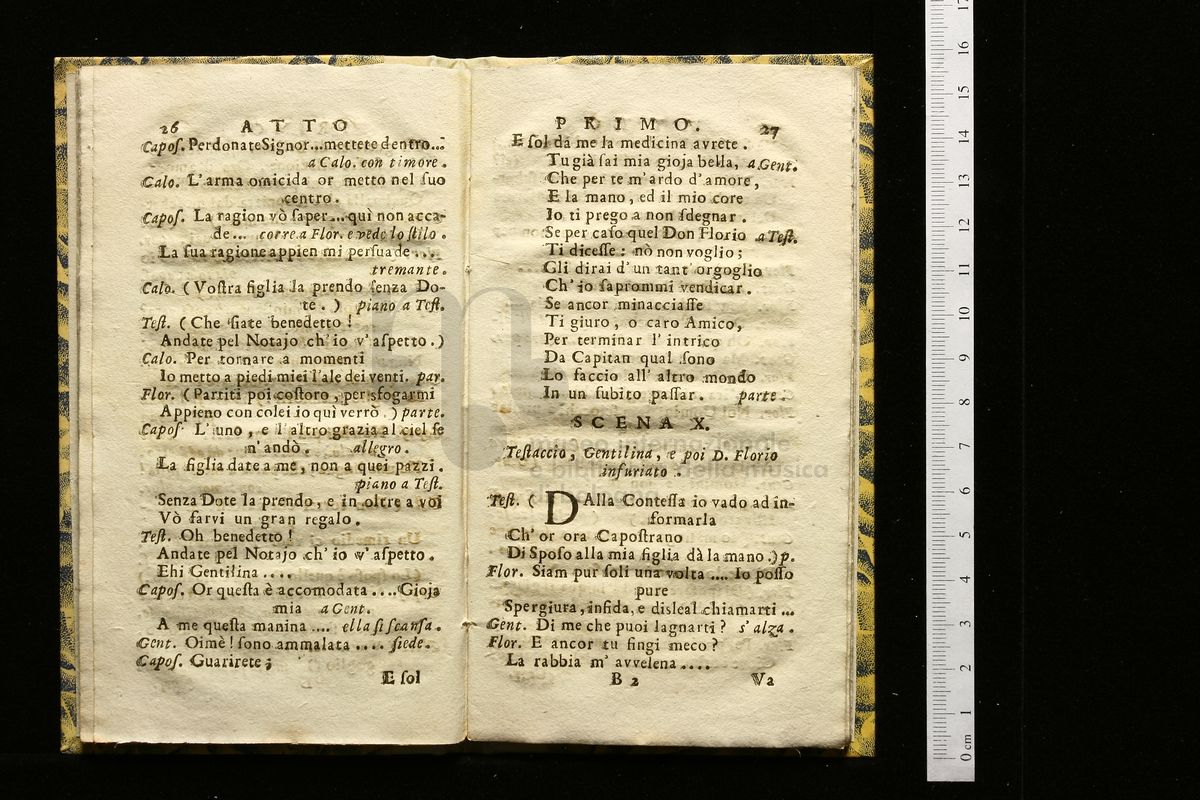 26 ATTO
Capoſ. Perdonate Signor...mettete dentro...
a Calo. con timore.
Calo. L'arma omicida or metto nel ſuo
centro.
Capoſ. La ragion vò ſaper...quì non acca-
de... corre a Flor. e vede lo ſtilo.
La ſua ragione appien mi perſuade...
tremante.
Calo. (Voſtra figlia la prendo ſenza Do-
te.) piano a Teſt.
Teſt. (Che ſiate benedetto!
Andate pel Notajo ch'io v'aſpetto.)
Calo. Per tornare a momenti
Io metto a piedi miei l'ale dei venti. par.
Flor. (Partiti poi coſtoro, per sfogarmi
Appieno con colei io quì verrò.) parte.
Capoſ. L'uno, e l'altro grazia al ciel ſe
n'andò. allegro.
La figlia date a me, non a quei pazzi.
piano a Teſt.
Senza Dote la prendo, e in oltre a voi
Vò farvi un gran regalo.
Teſt. Oh benedetto!
Andate pel Notajo ch'io v'aſpetto.
Ehi Gentilina....
Capoſ. Or queſta è accomodata....Gioja
mia a Gent.
A me queſta manina.... ella ſi ſcanſa.
Gent. Oimè! ſono ammalata.... ſiede.
Capoſ. Guarirete;
E ſol
PRIMO. 27
E ſol da me la medicina avrete.
Tu già ſai mia gioja bella, a Gent.
Che per te m'ardo d'amore,
E la mano, ed il mio core
Io ti prego a non ſdegnar.
Se per caſo quel Don Florio a Teſt.
Ti diceſſe: nò non voglio;
Gli dirai d'un tant'orgoglio
Ch'io ſaprommi vendicar.
Se ancor minacciaſſe
Ti giuro, o caro Amico,
Per terminar l'intrico
Da Capitan qual ſono
Lo faccio all'altro mondo
In un ſubito paſſar. parte.
SCENA X.
Teſtaccio, Gentilina, e poi D. Florio
infuriato.
Teſt. (DAlla Conteſſa io vado ad in-
formarla
Ch'or ora Capoſtrano
Di Spoſo alla mia figlia dà la mano.) p.
Flor. Siam pur ſoli una volta.... Io poſſo
pure
Spergiura, infida, e disleal chiamarti...
Gent. Di me che puoi lagnarti? s'alza.
Flor. E ancor tu fingi meco?
La rabbia m'avvelena....
B 2 Va
museo internazionale
e biblioteca della musica